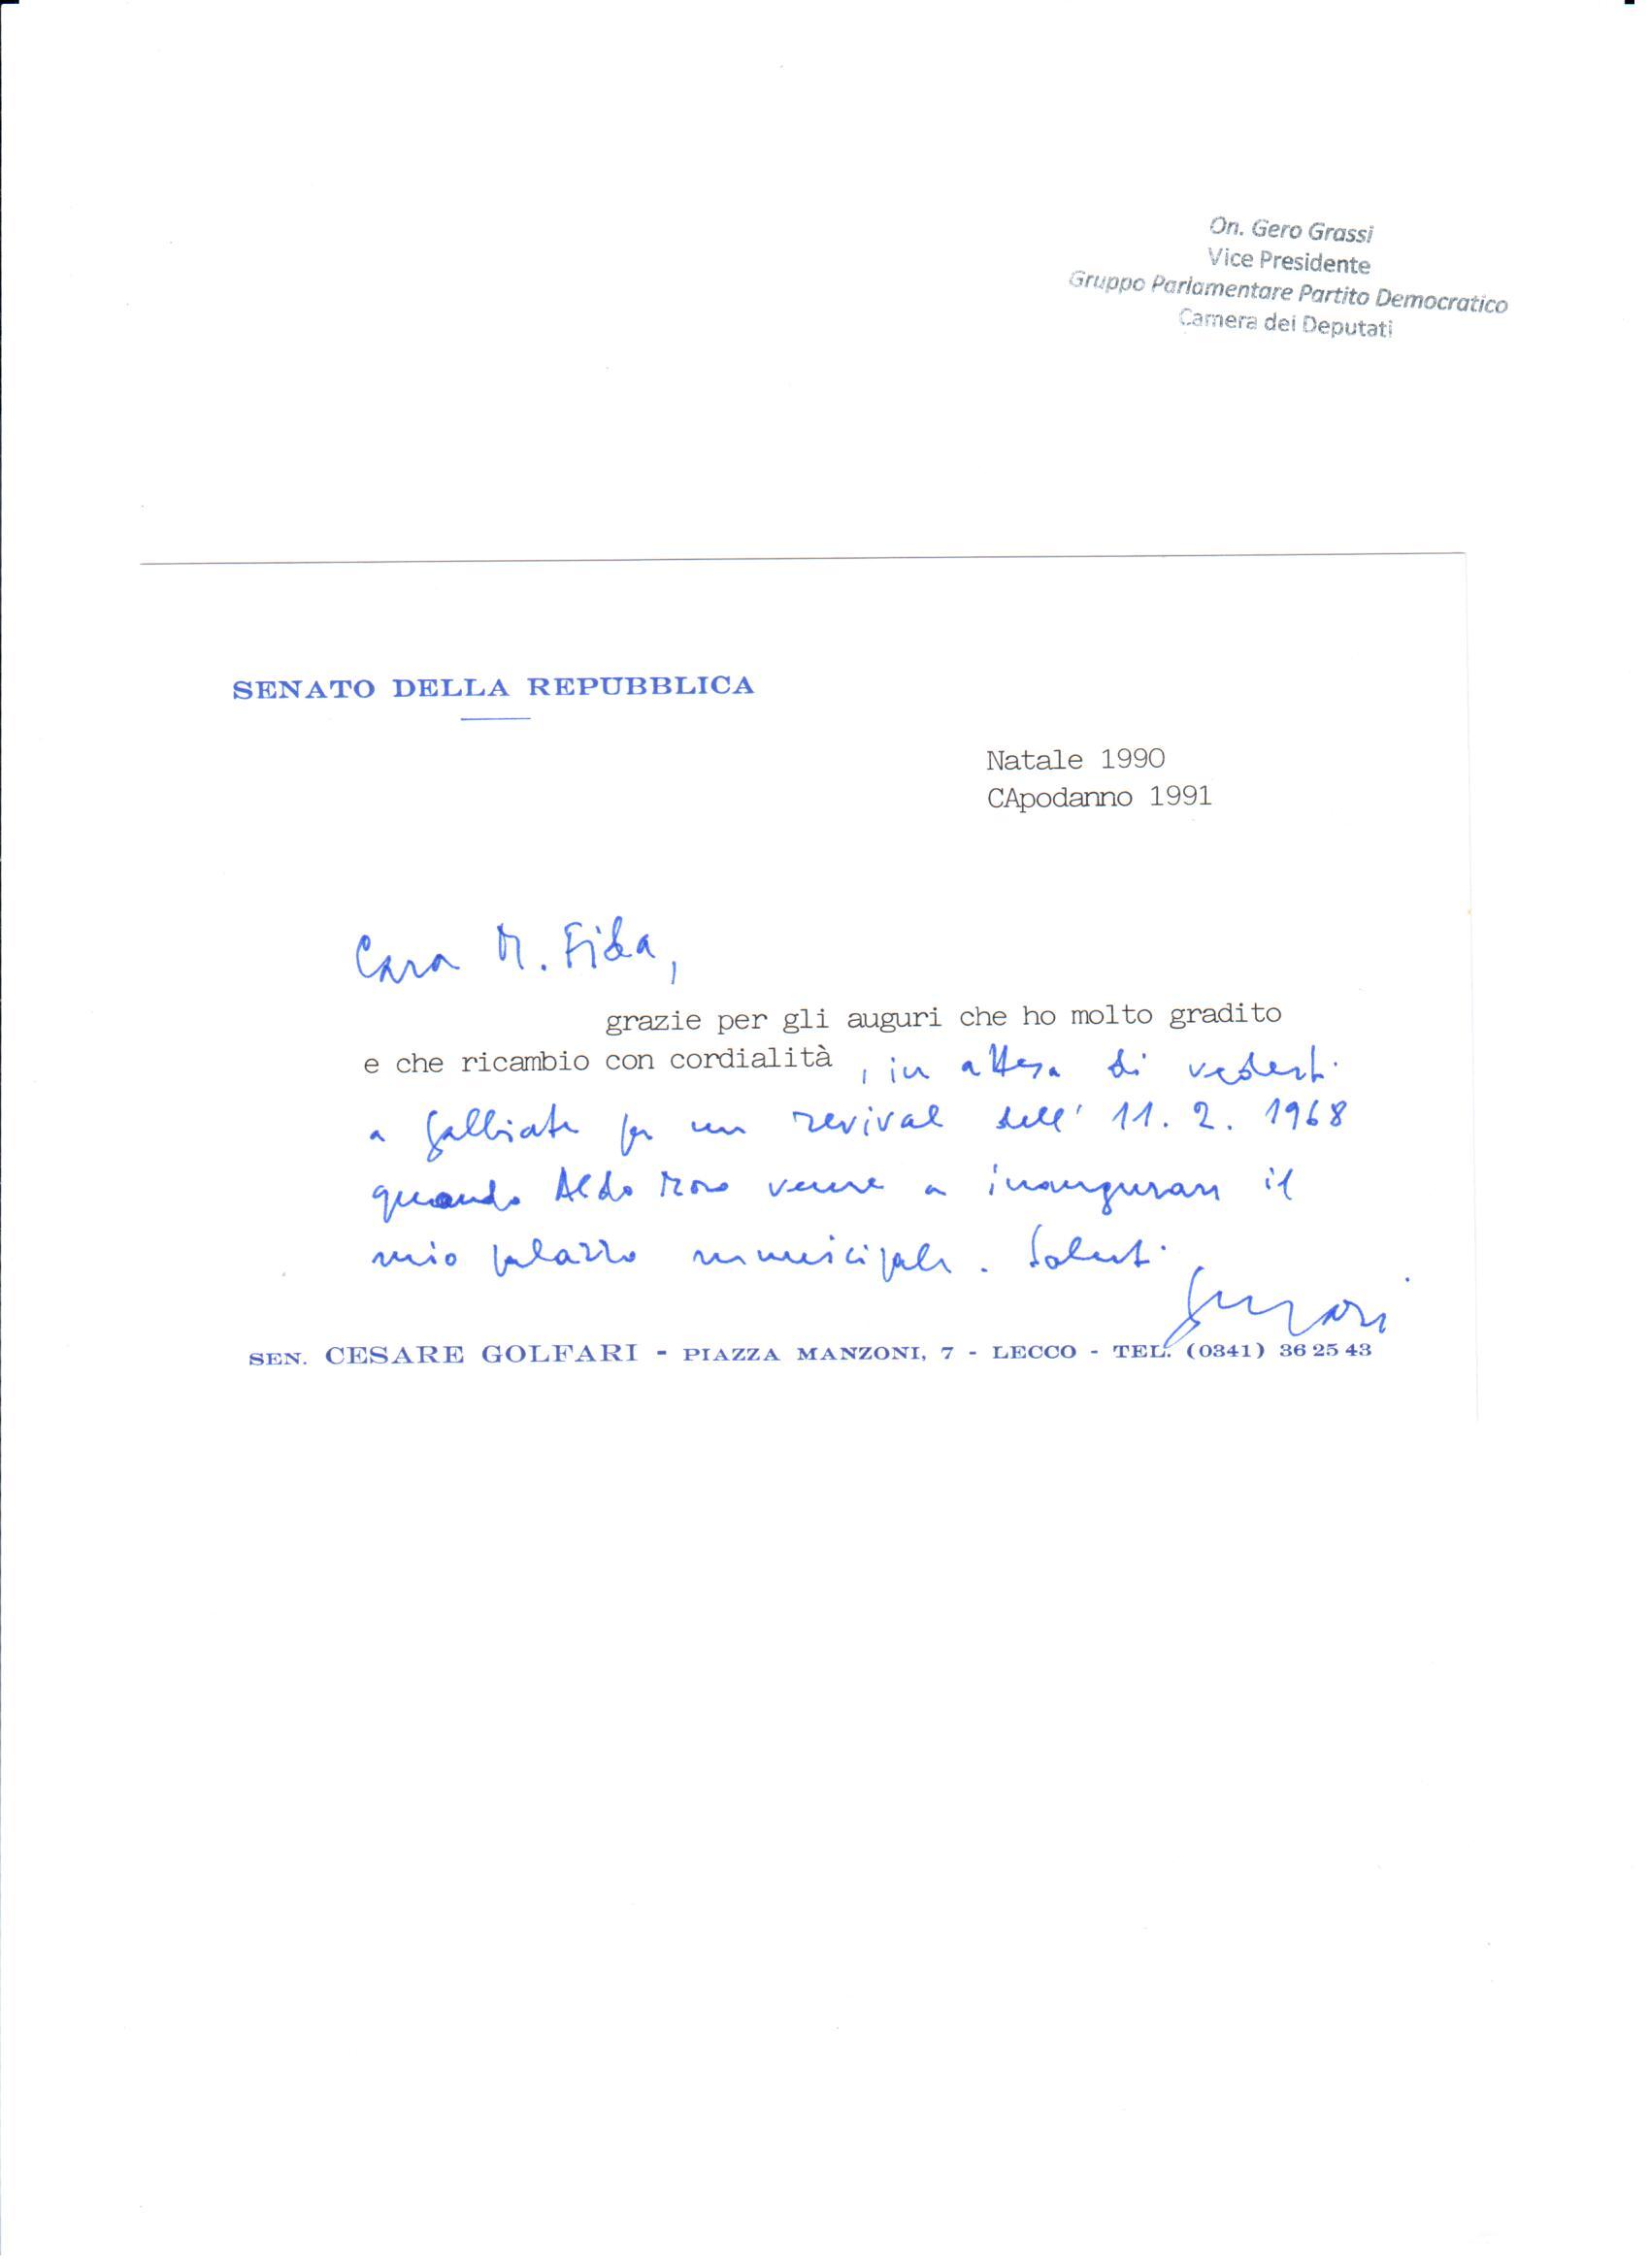 On. Gero Grassi
Vice Presidente
Gruppo Parlamentare Partito Democratico
Camera dei Deputati
SENATO DELLA REPUBBLICA
Natale 1990
CApodanno 1991
Cara M. Fida,
grazie per gli auguri che ho molto gradito
e che ricambio con cordialità, in attesa di vederti
a Galbiate per un revival dell' 11. 2. 1968
quando Aldo Moro venne a inaugurare il
mio palazzo municipale. Saluti
SEN. CESARE GOLFARI - PIAZZA MANZONI, 7 - LECCO - TEL. (0341) 36 25 43